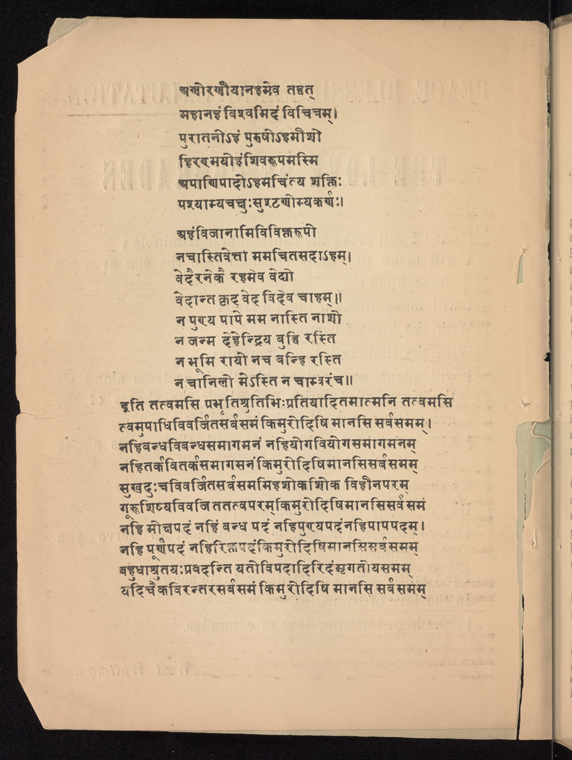 अणोरणीयानहमेव तद्वत्
महानहंविश्वमिदं विचित्रम्।
पुरातनोऽहं पुरुषोऽहमीशो
हिरणमयोहंशिवरूपमस्मि
अपाणिपादोऽहमचिंत्य शक्तिः
पश्याम्यचक्षुःसुश्टणोम्यकर्णः।
अहंविजानामिविविक्तरूपो
नचास्तिवेत्ता ममचितसदाऽहम्।
वेदैरनेकै रहमेव वेद्यो
वेदान्त क्रद् वेद् विदेव चाहम्॥
न पुण्य पापे मम नास्ति नाशो
न जन्म देहेन्द्रिय बुद्धि रस्ति
न भूमि रायो नच वन्हि रस्ति
न चानिलो मेऽस्ति न चाम्बरंच॥
इति तत्वमसि प्रभृतिश्रुतिभिःप्रतियादितमात्मनि तत्वमसि
त्वमुपाधिविवर्जितसर्वसमं किमुरोदिषि मानसि सर्वसमम्।
नहिबन्धविबन्धसमागमनं नहियोगवियोगसमागमनम्
नहितर्कवितर्कसमागसनं किमुरोदिषिमानसिसर्वसमम्
सुखदुःचविवर्जितसर्वसममिहशोकाशोक विहीनपरम्
गूरूशिष्यविवजिततत्वपरम्किमुरोदिषिमानसिसर्वसमं
नहि मोचपदं नहिं बन्ध पदं नहिपुण्यपदंनहिपापपदम्।
नहि पूर्णपदं नहिरिक्तपदंकिमुरोदिषिमानसिसर्वसमम्
बहुधाश्रुतयःप्रवदन्ति यतोविपदादिरिदंमृगतोयसमम
यदिचैकविरन्तरसर्वसमं किमुरोदिषि मानसि सर्वसमम्